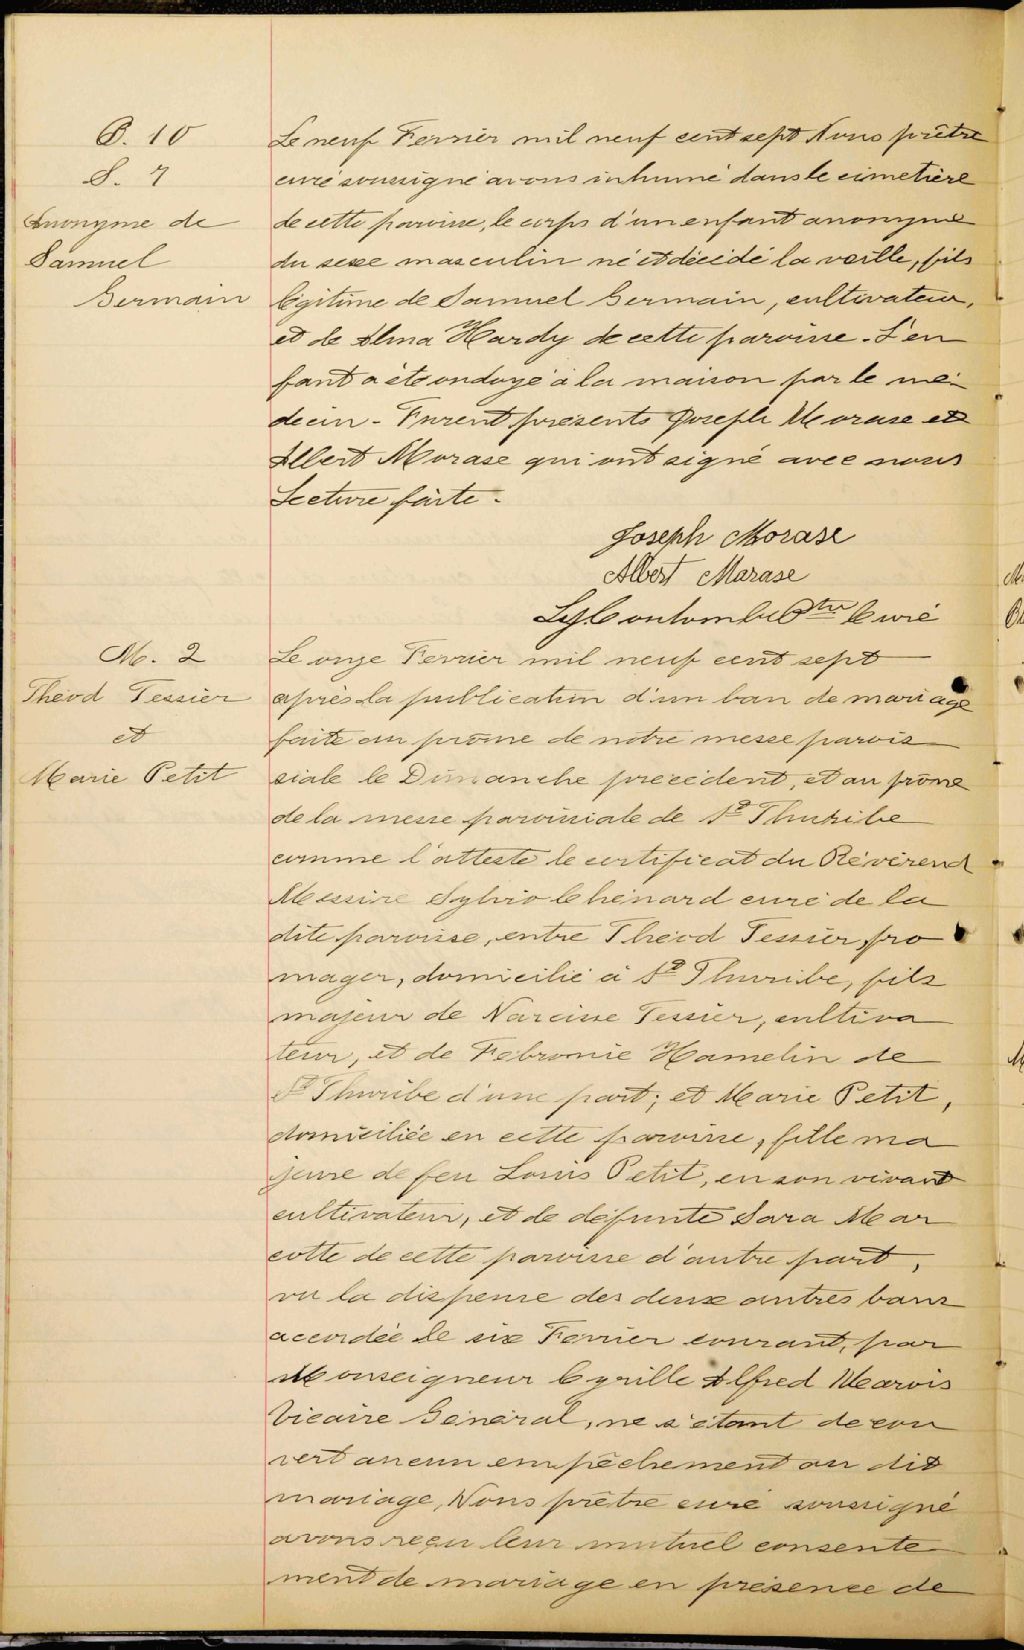 B. 10
S. 7
Anonyme de
Samuel
Germain
Le neuf Fevrier mil neuf cent sept Nous prêtre
curé soussigné avons inhumé dans le cimetière
de cette paroisse, le corps d'un enfant anonyme
du sexe masculin né et décédé la veille, fils
légitime de Samuel Germain, cultivateur,
et de Alma Hardy de cette paroisse. L'en
fant a été ondoyé à la maison par le mé-
decin - Furent présents Joseph Morase et
Albert Morase qui ont signé avec nous
Lecture faite.
Joseph Morase
Albert Marase
Ptre Curé
M. 2
Théod Tessier
et
Marie Petit
Le onze Fevrier mil neuf cent sept
après la publication d'un ban de mariage
faite au prône de notre messe parois
siale le Dimanche precédent, et au prône
de la messe paroissiale de St Thuribe
comme l'atteste le certificat du Révérend
Messire Sylvio Chénard curé de la
dite paroisse, entre Théod Tessier, fro
mager, domicilié à St Thuribe, fils
majeur de Narcisse Tessier, cultiva
teur, et de Febronie Hamelin de
St Thuribe d'une part; et Marie Petit,
domiciliée en cette paroisse, fille ma
jeure de feu Louis Petit, en son vivant
cultivateur, et de défunte Sara Mar
cotte de cette paroisse d'autre part,
vu la dispense des deux autres bans
accordée le six Fevrier courant, par
Monseigneur Cyrille Alfred Marois
Vicaire Général, ne s'étant decou
vert aucun empêchement au dit
mariage, Nous prêtre curé soussigné
avons reçu leur mutuel consente
ment de mariage en présence de